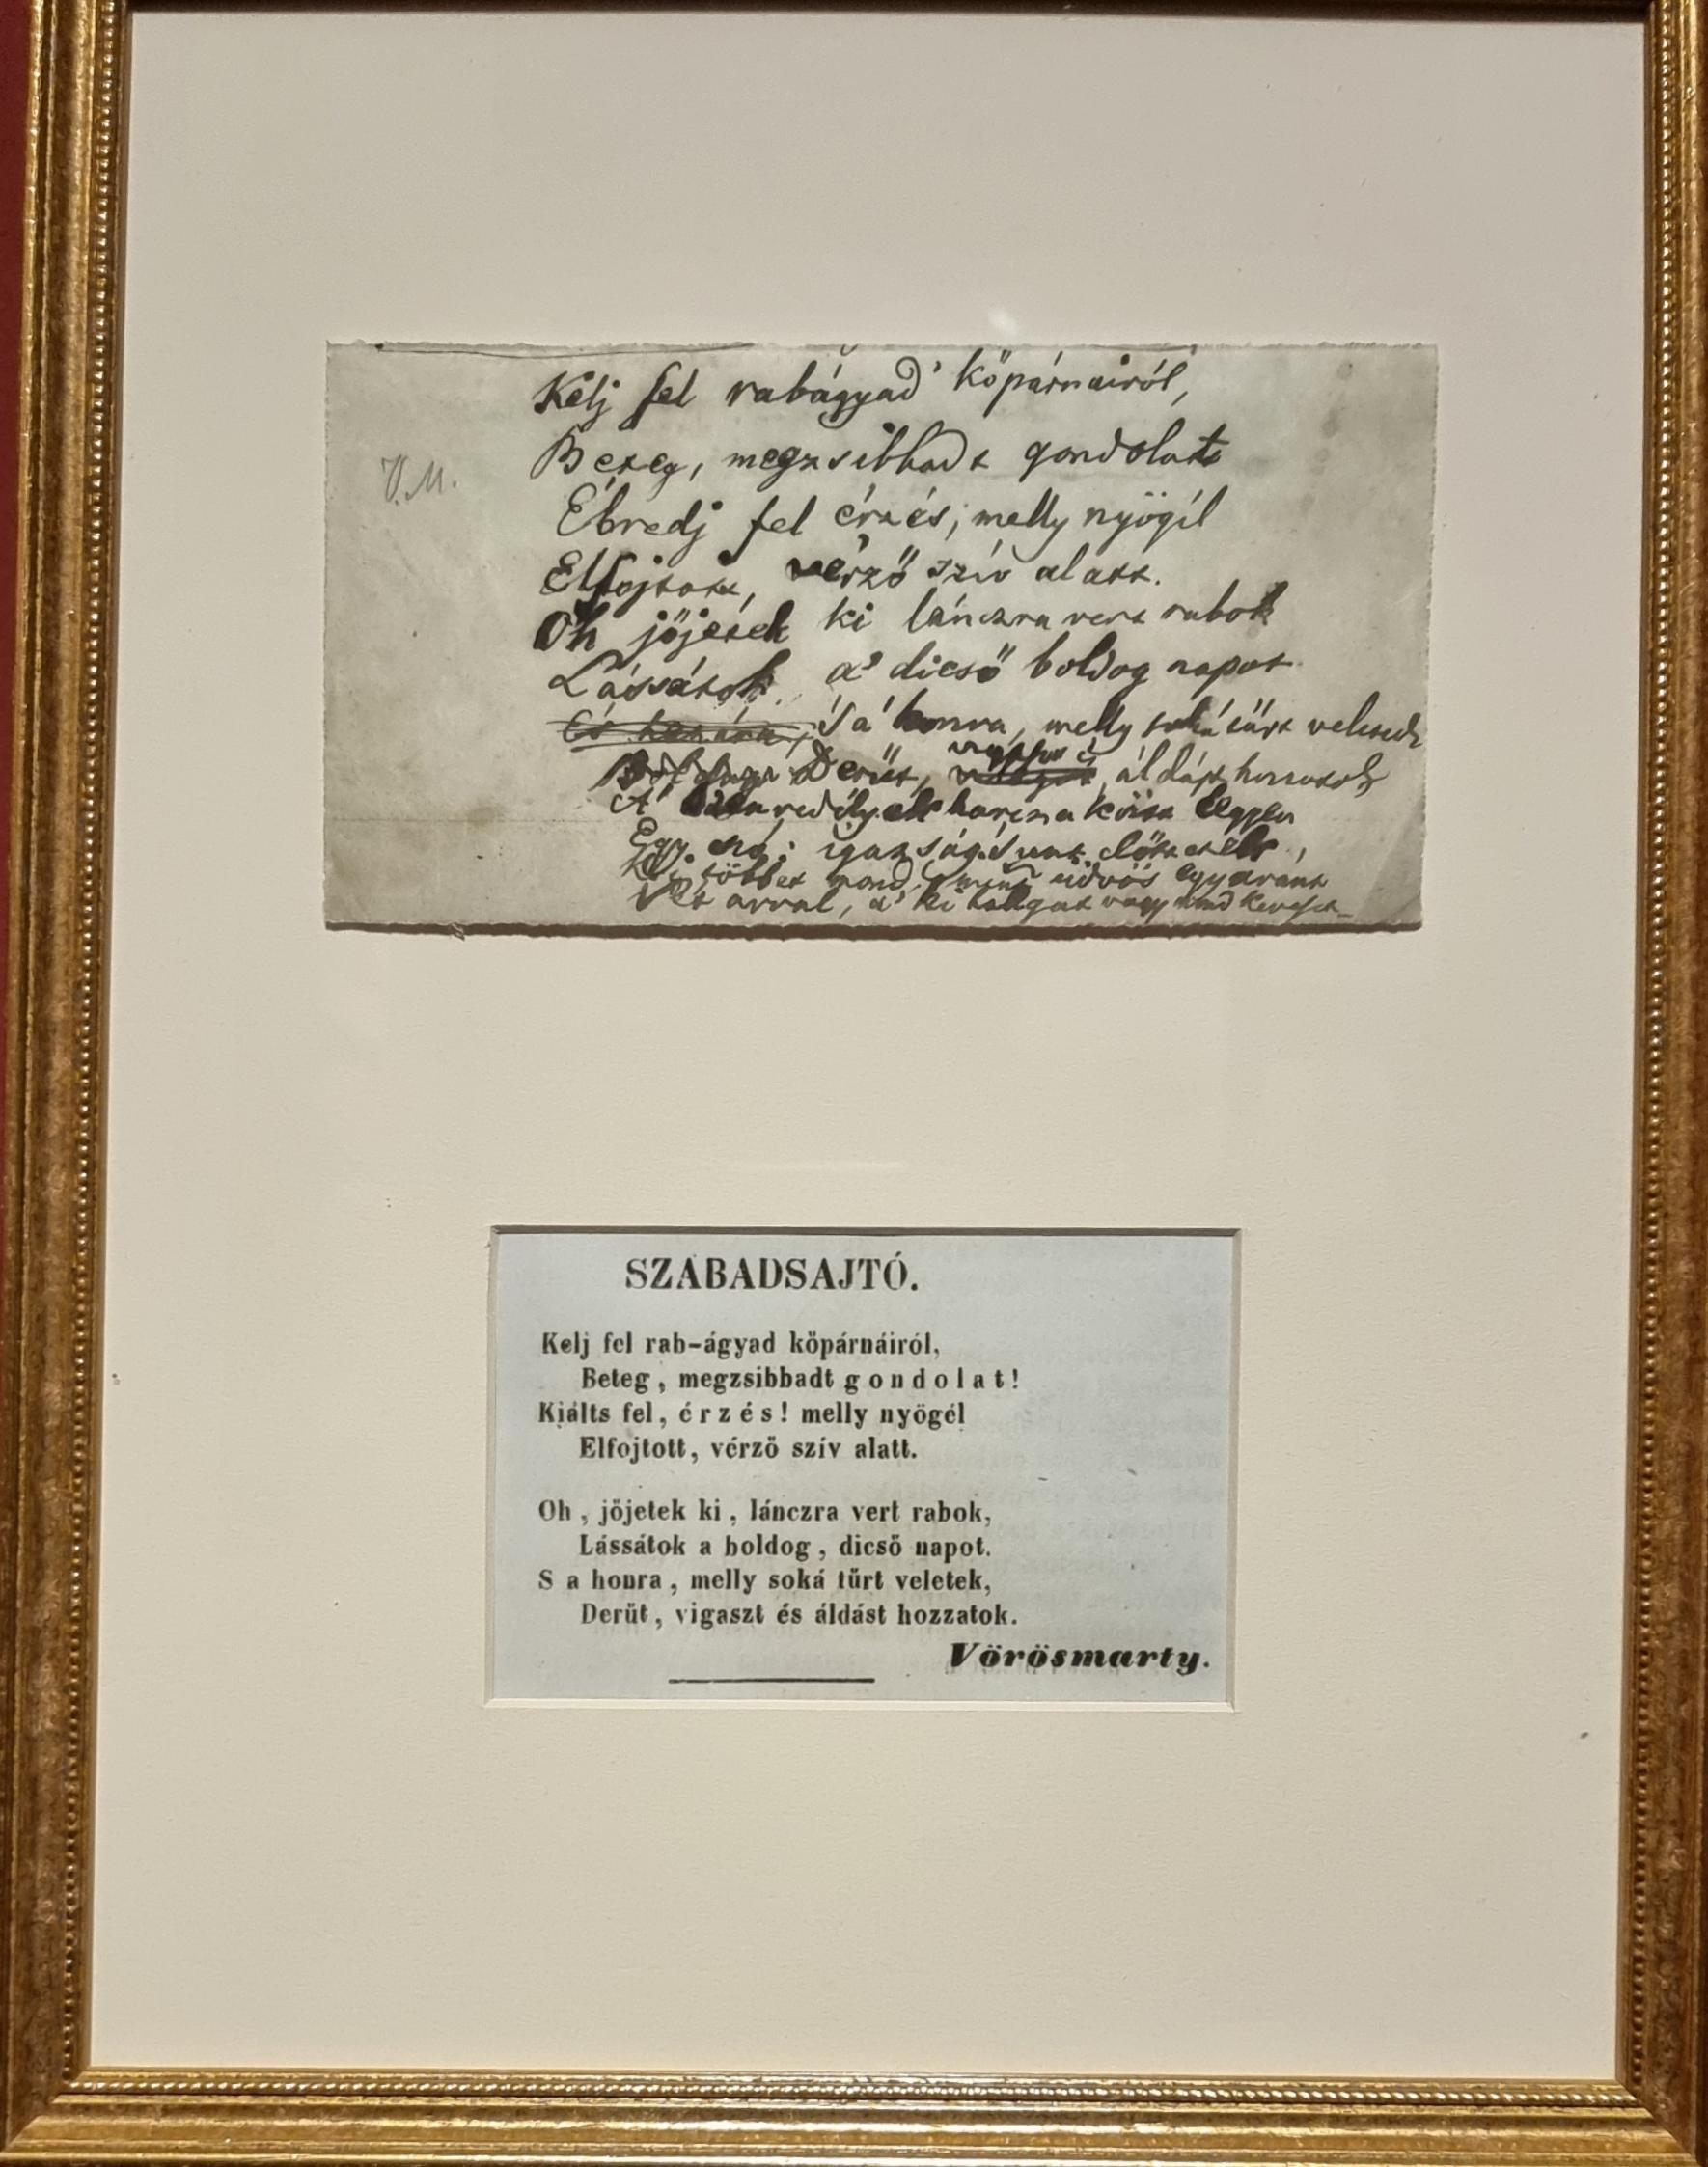 V.M.
Kelj fel rabágyad' kőpárnairól,
Beteg, megzsibbadt gondolat
Ébredj fel érzés, melly nyögél
Elfojtott, vérző szív alatt.
Oh jőjetek ki lánczra vert rabok
Lássátok a' dicső boldog napot
S a' honra, melly soká tűrt veletek
Derűt, vigaszt és áldást hozzatok
A' szenvedélyek harcza közt legyen
Egy szó: igazság!
többet mond, mint üdvös egyaránt
Vét avval, a' ki hallgat vagy mond keveset
SZABADSAJTÓ.
Kelj fel rab-ágyad kőpárnáiról,
Beteg, megzsibbadt gondolat!
Kiálts fel, érzés! melly nyögél
Elfojtott, vérző szív alatt.
Oh, jőjetek ki, lánczra vert rabok,
Lássátok a boldog, dicső napot.
S a honra, melly soká tűrt veletek,
Derűt, vigaszt és áldást hozzatok.
Vörösmarty.